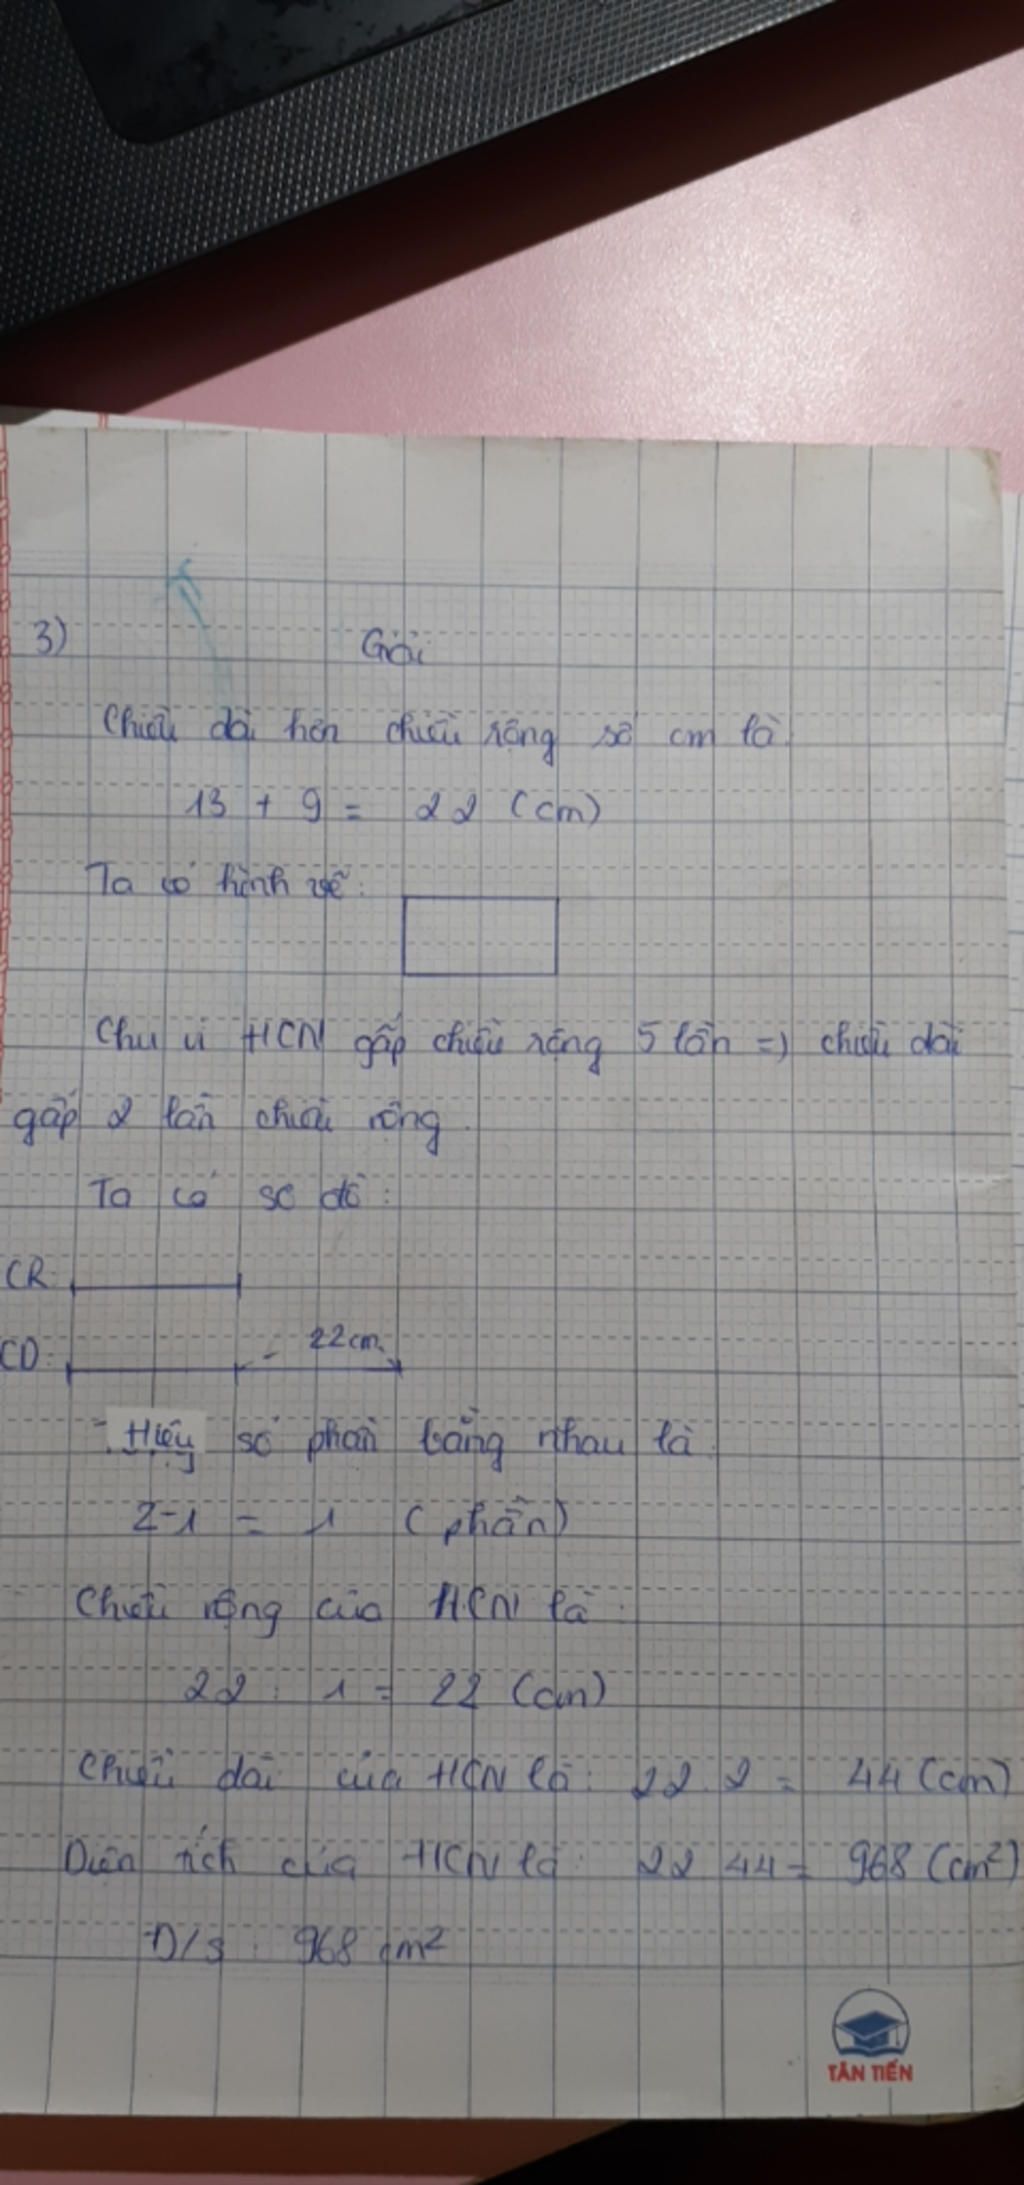 3)
Giải
Chiều dài hơn chiều rộng số cm là
13 + 9 = 22 (cm)
Ta có hình vẽ:
Chu vi HCN gấp chiều rộng 5 lần => chiều dài
gấp 2 lần chiều rộng.
Ta có sơ đồ:
CR:
22cm
CD:
Hiệu số phần bằng nhau là
2-1 = 1 (phần)
Chiều rộng của HCN là:
22 : 1 = 22 (cm)
Chiều dài của HCN là: 22 . 2 = 44 (cm)
Diện tích của HCN là: 22 44 = 968 (cm²)
Đ/s : 968 cm²
TÂN TIẾN